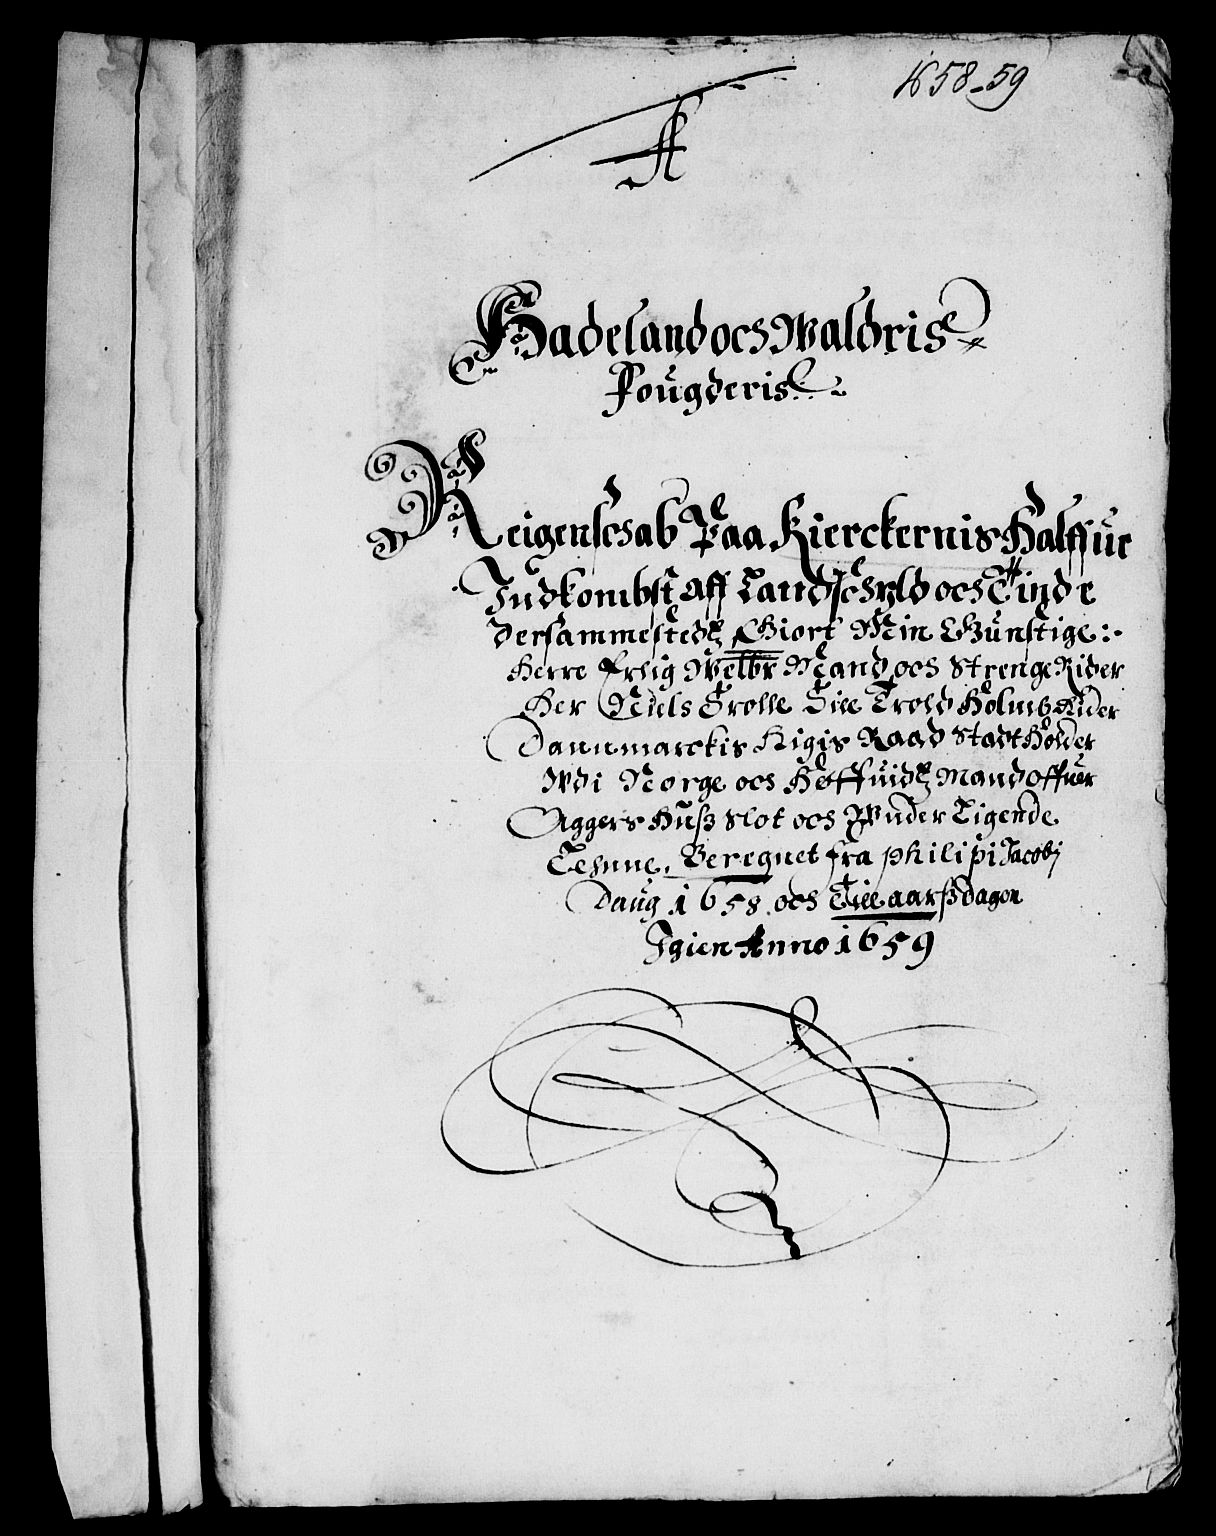 1658-59
A
Hadeland och Waldris
Fougderis
Reigenschab Paa Kierckernis Halffue
Indkombst aff Landschyld och Tiinde
dersammestedtz Giort Min Gunstige :
Herre Erlig Welbr Mand och Strenge Rider
Her Niels Trolle Till Trold Holmb Rider
Dannmarckis Rigis Raad Stadtholder
Wdi Norge och Høffuidtz Mand offuer
Aggers Husz Slot och Wnder Ligende
Lehnne, Beregnet fra philipi Jacobj
Daug 1658 och Till aarsz dagen
Igien Anno 1659